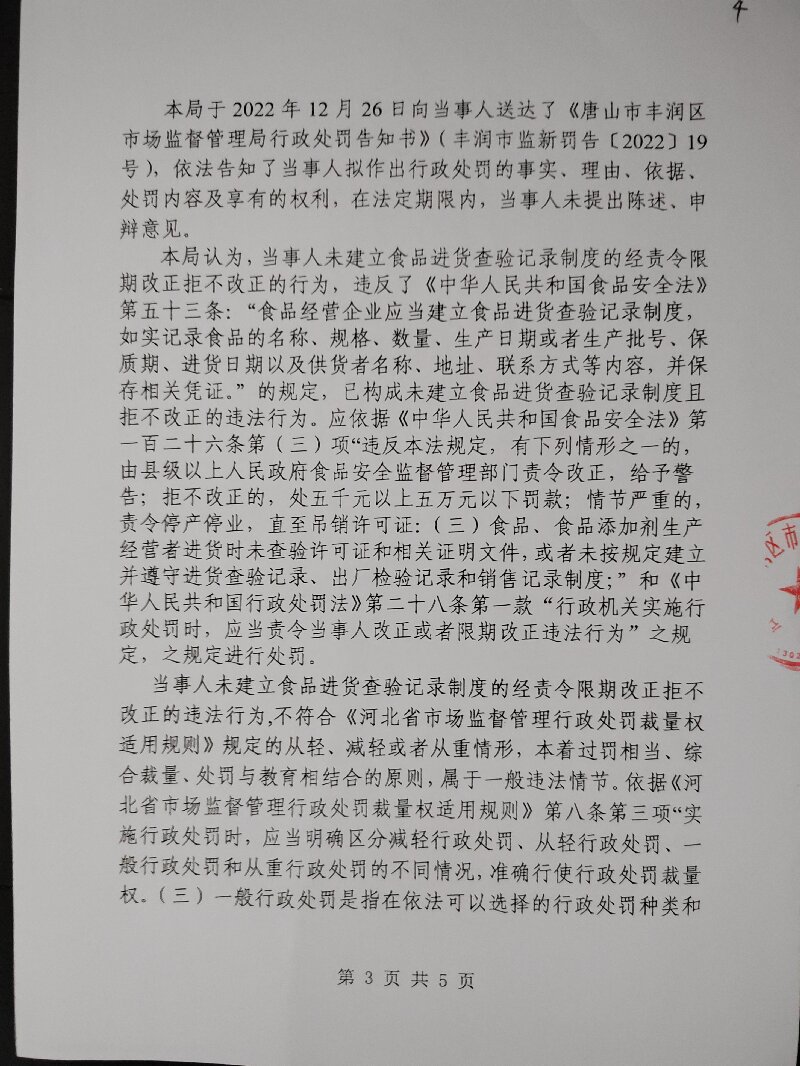 4
本局于 2022 年 12 月 26 日向当事人送达了《唐山市丰润区
市场监督管理局行政处罚告知书》（丰润市监新罚告〔2022〕19
号），依法告知了当事人拟作出行政处罚的事实、理由、依据、
处罚内容及享有的权利，在法定期限内，当事人未提出陈述、申
辩意见。
本局认为，当事人未建立食品进货查验记录制度的经责令限
期改正拒不改正的行为，违反了《中华人民共和国食品安全法》
第五十三条：“食品经营企业应当建立食品进货查验记录制度，
如实记录食品的名称、规格、数量、生产日期或者生产批号、保
质期、进货日期以及供货者名称、地址、联系方式等内容，并保
存相关凭证。”的规定，已构成未建立食品进货查验记录制度且
拒不改正的违法行为。应依据《中华人民共和国食品安全法》第
一百二十六条第（三）项“违反本法规定，有下列情形之一的，
由县级以上人民政府食品安全监督管理部门责令改正，给予警
告；拒不改正的，处五千元以上五万元以下罚款；情节严重的，
责令停产停业，直至吊销许可证：（三）食品、食品添加剂生产
经营者进货时未查验许可证和相关证明文件，或者未按规定建立
并遵守进货查验记录、出厂检验记录和销售记录制度；”和《中
华人民共和国行政处罚法》第二十八条第一款“行政机关实施行
政处罚时，应当责令当事人改正或者限期改正违法行为”之规
定，之规定进行处罚。
当事人未建立食品进货查验记录制度的经责令限期改正拒不
改正的违法行为,不符合《河北省市场监督管理行政处罚裁量权
适用规则》规定的从轻、减轻或者从重情形，本着过罚相当、综
合裁量、处罚与教育相结合的原则，属于一般违法情节。依据《河
北省市场监督管理行政处罚裁量权适用规则》第八条第三项“实
施行政处罚时，应当明确区分减轻行政处罚、从轻行政处罚、一
般行政处罚和从重行政处罚的不同情况，准确行使行政处罚裁量
权。（三）一般行政处罚是指在依法可以选择的行政处罚种类和
区市
1302
第 3 页 共 5 页